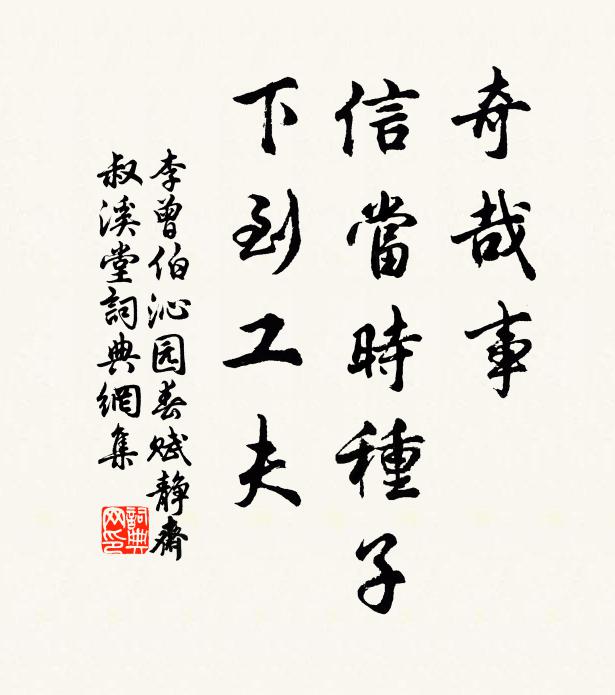 奇哉事
信當時種子
下到工夫
李曾伯沁园春赋静齋
叔溪堂詞典網集
詞典
网印